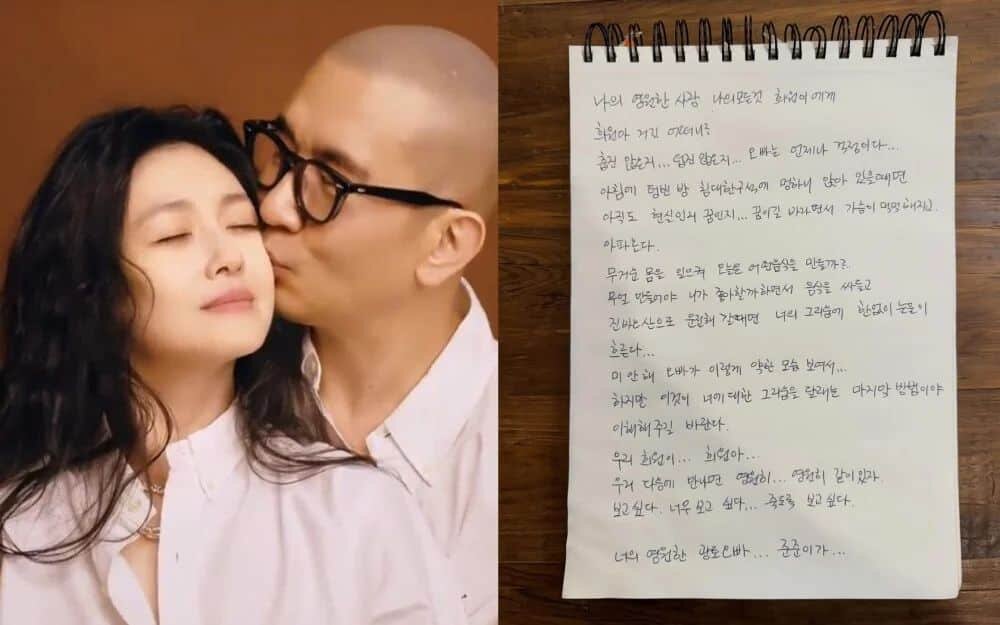 나의 영원한 사랑 나의모든것 희원이에게
희원아 거긴 어떠니?
춥진 않은지... 덥진 않은지... 오빠는 언제나 걱정이다...
아침에 텅빈 방 침대한구석에 멍하니 앉아 있을때면
아직도 현실인지 꿈인지... 꿈이길 바라면서 가슴이 먹먹해지고
아파온다.
무거운 몸을 일으켜 오늘은 어떤음식을 만들까?
무얼 만들어야 니가 좋아할까하면서 음식을 싸들고
진바오산으로 운전해 갈때면 너의 그리움에 한없이 눈물이
흐른다...
미안해 오빠가 이렇게 약한 모습 보여서...
하지만 이것이 너에대한 그리움을 달래는 마지막 방법이야
이해해주길 바란다.
우리 희원이... 희원아...
우리 다음에 만나면 영원히... 영원히 같이있자.
보고싶다. 너무 보고 싶다... 죽도록 보고싶다.
너의 영원한 광토오빠... 준준이가...